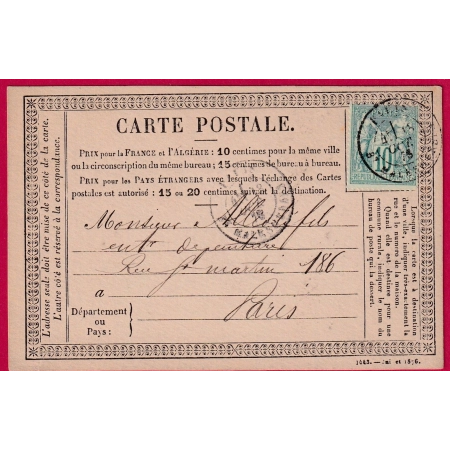 CARTE POSTALE.
PRIX pour la FRANCE et l'ALGÉRIE: 10 centimes pour la même ville
ou la circonscription du même bureau; 15 centimes de bureau à bureau.
PRIX pour les PAYS ÉTRANGERS avec lesquels l'échange des Cartes
postales est autorisé: 15 ou 20 centimes suivant la destination.
L'adresse seule doit être mise de ce côté de la carte.
L'autre côté est réservé à la correspondance.
Monsieur fils
entr de peinture
Rue St martin 186
a
Paris
Département
ou
Pays:
Lorsque la carte est destinée
d'une ville, indiquer très-exactement le
numéro de la maison.
Quand elle est destinée pour une commune
rurale, indiquer le nom du
bureau de poste qui la dessert.
10